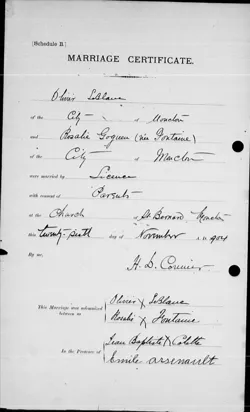 [Schedule B.]
MARRIAGE CERTIFICATE.
Olivier LeBlanc
of the City of Moncton
and Rosalie Goguen (née Fontaine)
of the City of Moncton
were married by Licence
with consent of Parents
at the Church of St. Bernard Moncton
this twenty-sixth day of November A.D. 1904
By me,
H. D. Cormier
This Marriage was solemnized between
Olivier X LeBlanc
Rosalie X Fontaine
In the Presence of
Jean Baptiste X Collette
Emile Arsenault